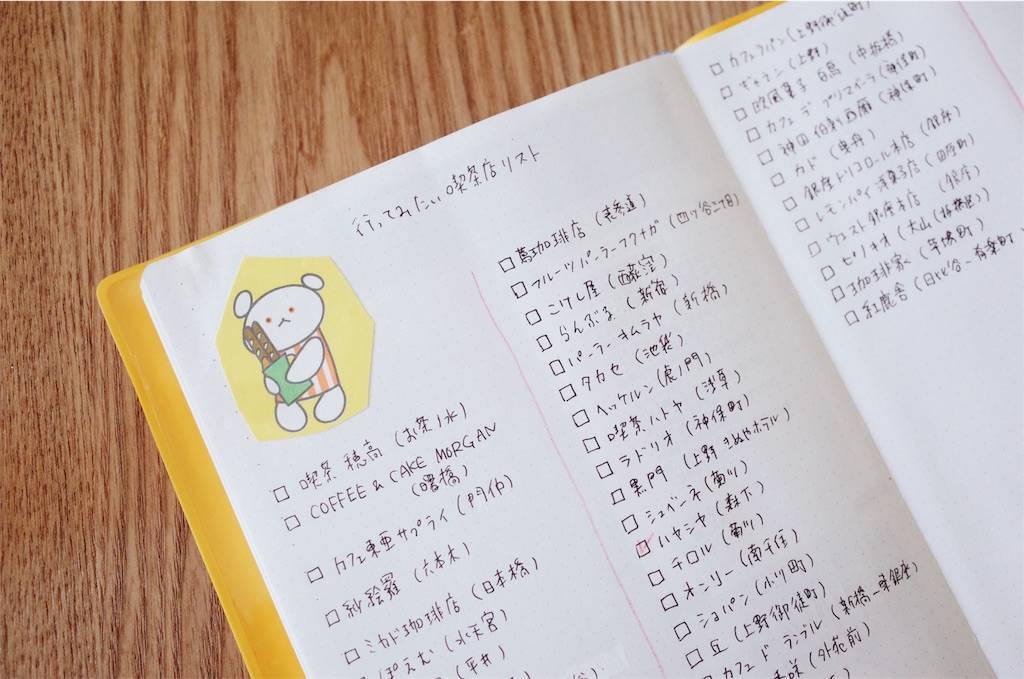 行ってみたい喫茶店リスト
□ 喫茶 穂高 (お茶ノ水)
□ COFFEE & CAKE MORGAN
(曙橋)
□ カフェ東亜サプライ (門仲)
□ 紗絵羅 (六本木)
□ ミカド珈琲店 (日本橋)
ぽえむ (水天宮)
(平井)
□ 蔦珈琲店 (表参道)
□ フルーツパーラーフクナガ (四ツ谷三丁目)
□ こけし屋 (西荻窪)
□ らんぶる (新宿)
□ パーラーキムラヤ (新橋)
□ タカセ (池袋)
□ ヘッケルン (虎ノ門)
□ 喫茶ハトヤ (浅草)
□ ラドリオ (神保町)
□ 黒門 (上野 きぬやホテル)
□ シュベーネ (菊川)
□ ハヤシヤ (森下)
□ チロル (菊川)
□ オンリー (南千住)
□ ショパン (小川町)
□ 丘 (上野御徒町)
□ カフェ ド ランブル (新橋−東銀座)
(外苑前)
□ カフェラパン (上野御徒町)
□ ギャラン (上野)
□ 欧風菓子 白鳥 (中板橋)
□ カフェ デ プリマベーラ (神保町)
□ 神田伯剌西爾 (神保町)
□ カド (曳舟)
□ 銀座トリコロール本店 (銀座)
□ レモンパイ 洋菓子店 (田原町)
□ ウエスト銀座本店 (銀座)
□ ピノキオ (大山(板橋区))
□ 珈琲家 (茅場町)
□ 紅鹿舎 (日比谷−有楽町)